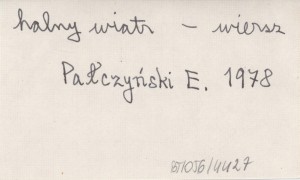 halny wiatr – wiersz
Pałczyński E. 1978
BTJO56/4427